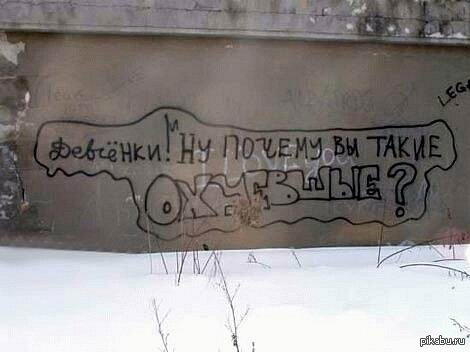 LEGA
Девчёнки! НУ ПОЧЕМУ ВЫ ТАКИЕ
ОХУЕВШЫЕ?
pikabu.ru